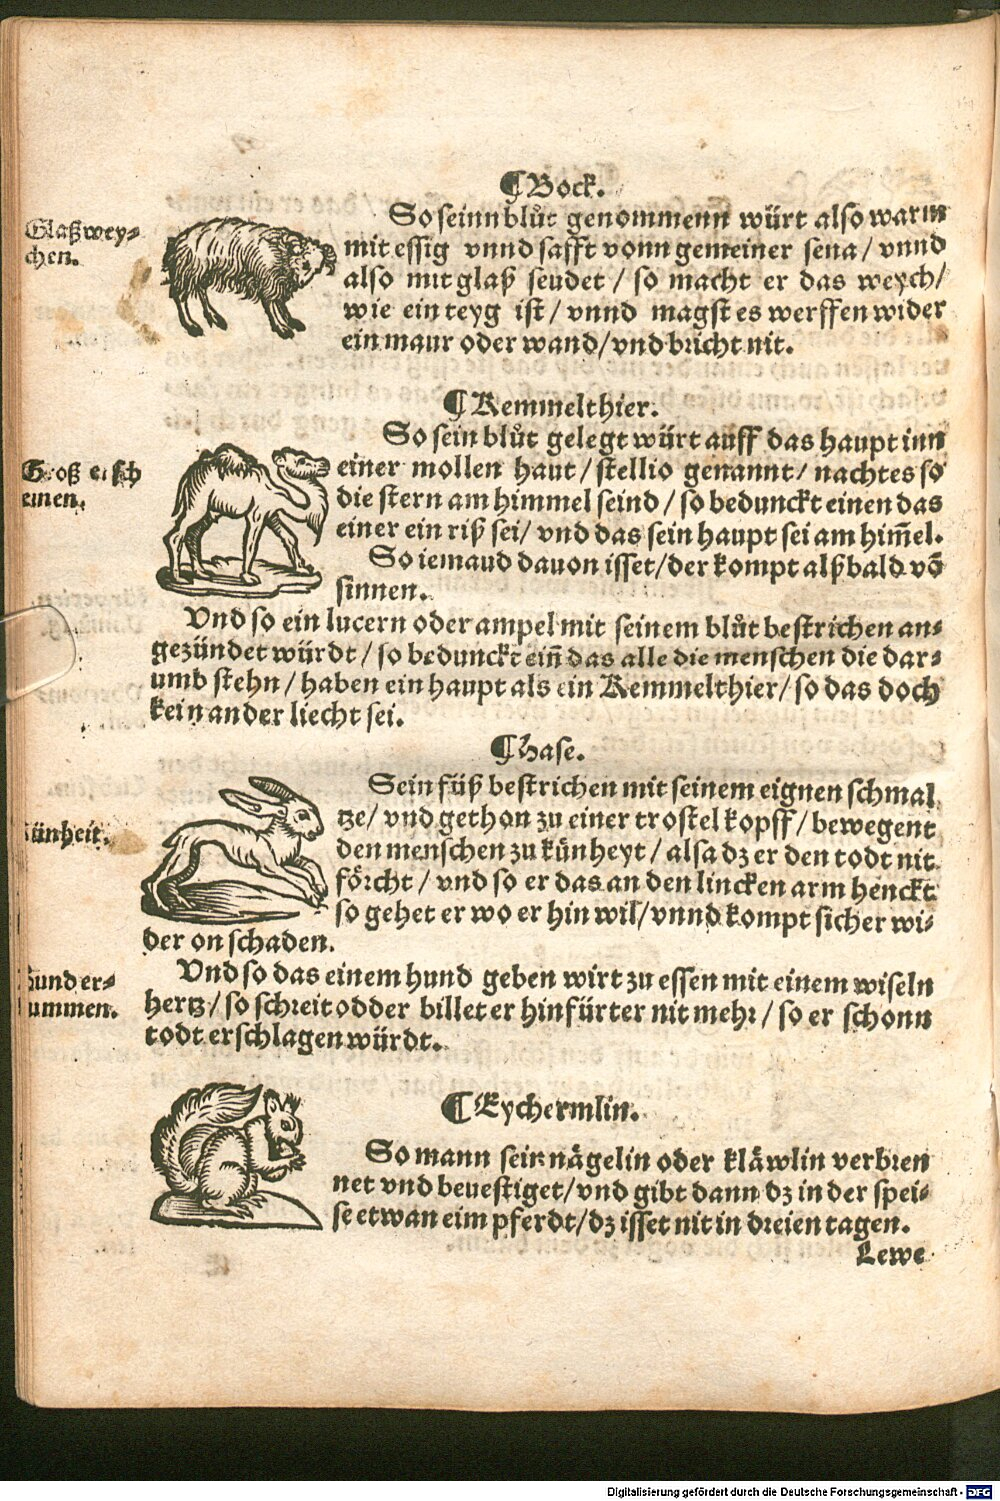 ¶Bock.
Glaßwey⸗
chen.
So seinn blůt genommenn würt also warm
mit essig vnnd safft vonn gemeiner sena / vnnd
also mit glaß seudet / so macht er das weych /
wie ein teyg ist / vnnd magst es werffen wider
ein maur oder wand / vnd bricht nit.
¶Kemmelthier.
Groß ersch
einen.
So sein blůt gelegt würt auff das haupt inn
einer mollen haut / stellio genannt / nachtes so
die stern am himmel seind / so bedunckt einen das
einer ein riß sei / vnd das sein haupt sei am him̃el.
So iemand dauon isset / der kompt alßbald võ
sinnen.
Vnd so ein lucern oder ampel mit seinem blůt bestrichen an⸗
gezündet würdt / so bedunckt ein̄ das alle die menschen die dar⸗
umb stehn / haben ein haupt als ein Kemmelthier / so das doch
kein ander liecht sei.
¶Hase.
künheit.
Sein füß bestrichen mit seinem eignen schmal
tze / vnd gethon zu einer trostel kopff / bewegent
den menschen zu künheyt / alsa dz er den todt nit
förcht / vnd so er das an den lincken arm henckt
so gehet er wo er hin wil / vnnd kompt sicher wi⸗
der on schaden.
Hund er⸗
stummen.
Vnd so das einem hund geben wirt zu essen mit einem wiseln
hertz / so schreit odder billet er hinfürter nit mehr / so er schonn
todt erschlagen würdt.
¶Eychermlin.
So mann sein nägelin oder kläwlin verbren
net vnd beuestiget / vnd gibt dann dz in der spei⸗
se etwan eim pferdt / dz isset nit in dreien tagen.
Lewe
Digitalisierung gefördert durch die Deutsche Forschungsgemeinschaft - DFG